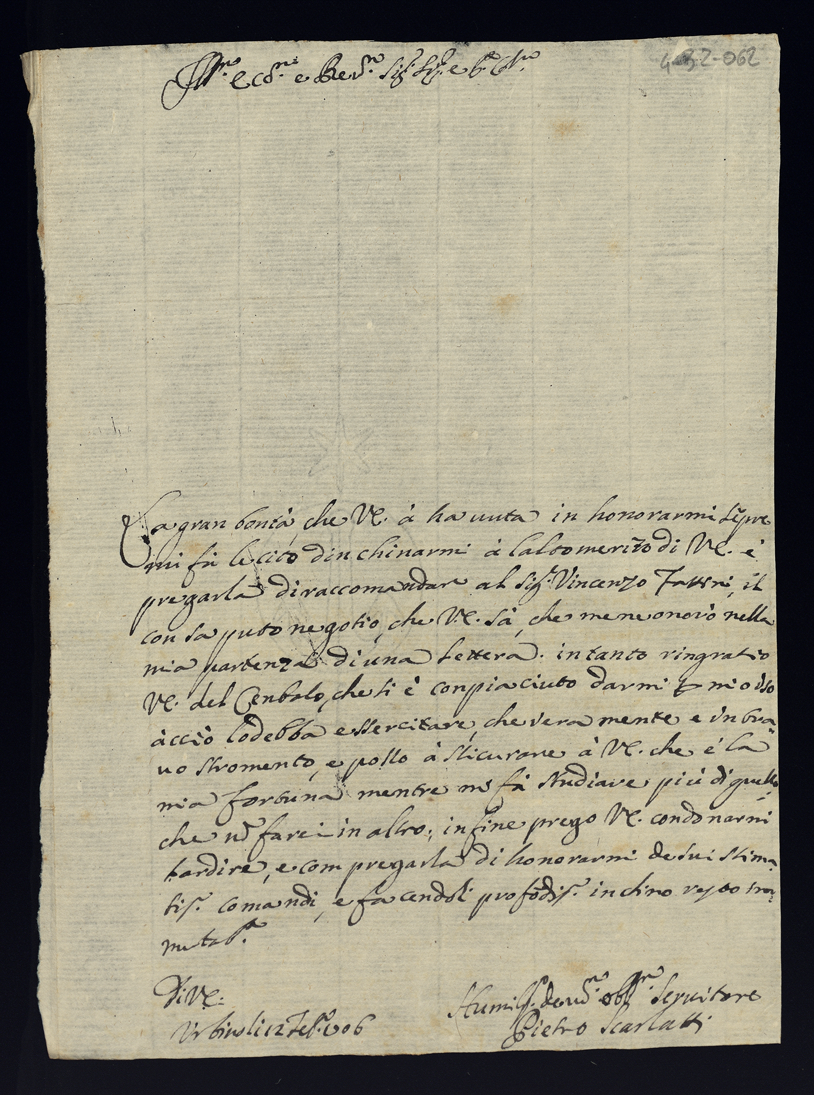 4-32-062
Ill.mo e Ecc.mo e Rev.mo Sig.r Sig.r e P.ne Col.mo
La gran bontà, che V.E. à ha uuta in honorarmi sẽpre
mi fà lecito dinchinarmi à laltomerito di V.E. è
pregarla diraccomandare al Sig.r Vincenzo Fattini, il
con sa puto negotio, che V.E. sà, che mene onorò nella
mia partenza diuna lettera. in tanto ringratio
V.E. del Cenbalo, che si è conpiaciuto darmi
àcciò lodebba essercitare, che vera mente e un bra
uo stromento, e posso à ssicurare à V.E. che é la
mia fortuna mentre mi fà studiare più di quello
che nõ farei in altro; infine prego V.E. condonarmi
lardire, e com pregarla di honorarmi de sui stima
tis.mi comandi, e facendoli profõdis.mo inchino resto
mutab.e
Di V.E.
Vrbino li 12 Feb.ro 1706
Humilis.o deuõ.mo oblig.mo Seruitore
Pietro Scarlatti